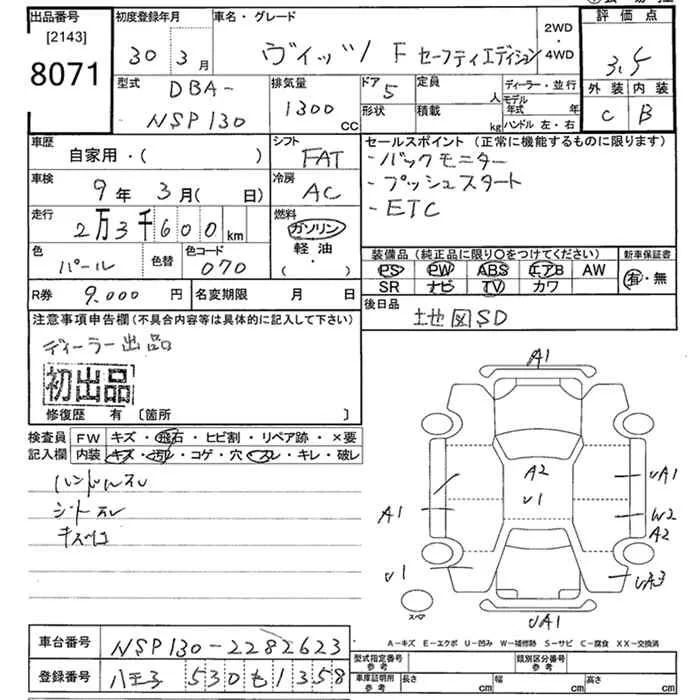 出品番号
[2143]
8071
初度登録年月
30年3月
車名・グレード
ヴィッツ F セーフティエディション
2WD
・
4WD
評価点
3.5
外装 内装
C B
型式
DBA-
NSP130
排気量
1300 cc
ドア 5
形状
定員 人
積載 kg
ディーラー・並行
モデル年式 年
ハンドル 左・右
車歴
自家用・( )
シフト
FAT
車検
9年3月( 日)
冷房
AC
走行
2万3千600 km
燃料
ガソリン
・
軽油
・
色
パール
色替
色コード
070
R券 9,000円
名変期限 月 日
セールスポイント(正常に機能するものに限ります)
・バックモニター
・プッシュスタート
・ETC
装備品(純正品に限り○をつけてください)
PS PW ABS エアB AW
SR ナビ TV カワ
新車保証書
有・無
後日品
地図SD
注意事項申告欄(不具合内容等は具体的に記入して下さい)
ディーラー出品
初出品
修復歴 有 〔箇所 〕
検査員記入欄
FW キズ・飛石・ヒビ割・リペア跡・×要
内装 キズ・汚レ・コゲ・穴・スレ・キレ・破レ
ハンドルスレ
シートスレ
A1
A2
U1
A1
UA1
W2
A2
U1
UA3
UA1
スペア
A-キズ E-エクボ U-凹み W-補修跡 S-サビ C-腐食 XX-交換済
車台番号 NSP130-2282623
登録番号 八王子 530 も 1358
型式指定番号 参考
類別区分番号 参考
車庫証明用 参考
長さ cm 幅 cm 高さ cm